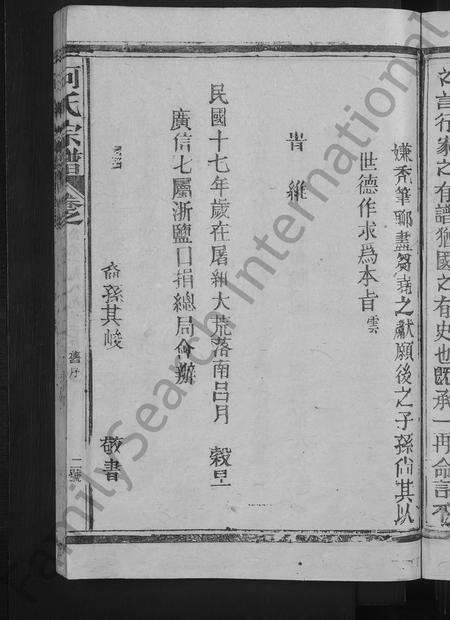 之言行家之有譜猶國之有史也既承一再命言不
嫌禿筆聊盡芻蕘之獻願後之子孫尙其以
世德作求為本旨雲
峕維
民國十七年歲在屠維大荒落南呂月 穀旦
廣信七屬浙鹽口捐總局會辦
裔孫其峻 敬書
河氏宗譜 卷之
舊序
二號
FamilySearch International